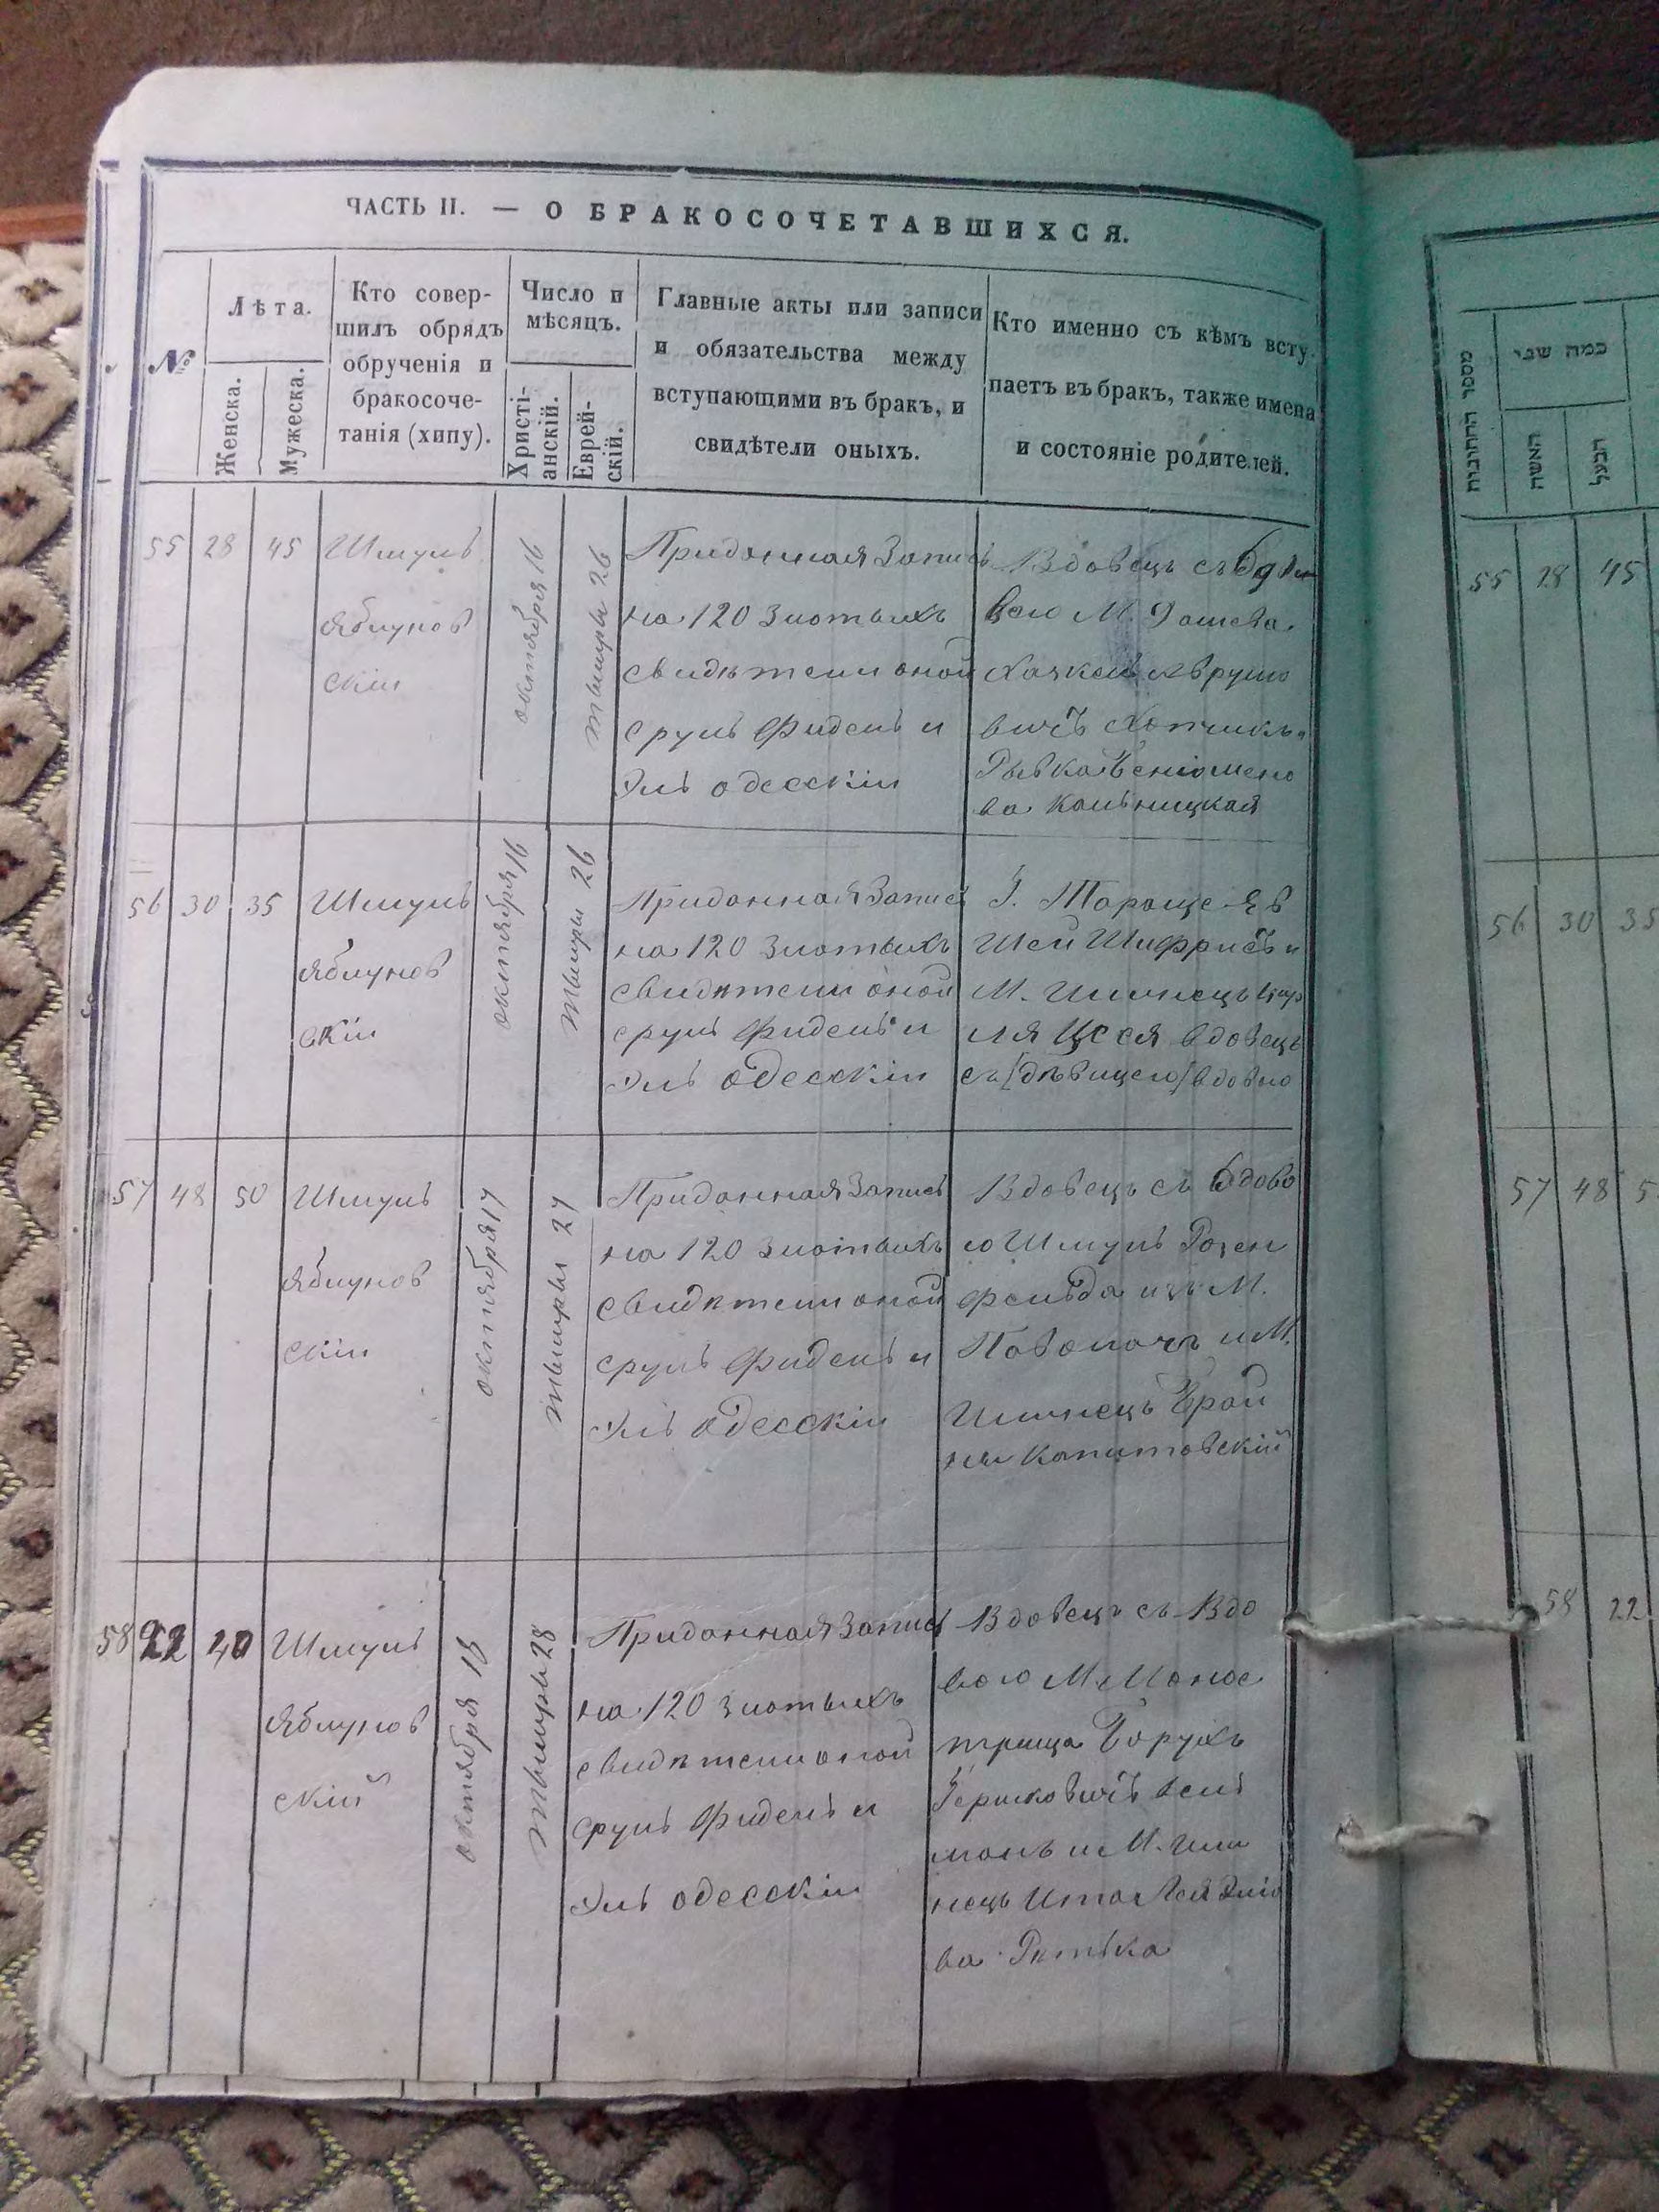 ЧАСТЬ II. — О БРАКОСОЧЕТАВШИХСЯ.
№
Лѣта.
Женска.
Мужеска.
Кто совер-
шилъ обрядъ
обрученія и
бракосоче-
танія (хипу).
Число и
мѣсяцъ.
Христі-
анскій.
Еврей-
скій.
Главные акты или записи
и обязательства между
вступающими въ бракъ, и
свидѣтели оныхъ.
Кто именно съ кѣмъ всту-
паетъ въ бракъ, также имена
и состояніе родителей.
55 28 45
Шмуль
Яблунов
скіи
октября 16
тышры 26
Приданная Запись
на 120 злотыхъ
свидѣтели оной
Сруль Фидель и
Эль Одесскіи
Вдовецъ съ
М. Дашева
Хаскель Авруmо
вичъ
Рывка
ва Кальницкая
56 30 35
Шмуль
Яблунов
скіи
октября 16
тышры 26
Приданная Запись
на 120 злотыхъ
свидѣтели оной
Сруль Фидель и
Эль Одесскіи
Г. Тараще
Шифрисъ и
М. Илинецъ
вдовецъ
съ [дѣвицею] вдовою
57 48 50
Шмуль
Яблунов
скіи
октября 17
тышры 27
Приданная Запись
на 120 злотыхъ
свидѣтели оной
Сруль Фидель и
Эль Одесскіи
Вдовецъ съ вдово
ю Шмуль Розен
фельда изъ М.
Паволочъ и М.
Илинецъ Брай
на Капитовскій
58 22 40
Шмуль
Яблунов
скій
октября 18
тышры 28
Приданная Запись
на 120 злотыхъ
свидѣтели оной
Сруль Фидель и
Эль Одесскіи
Вдовецъ съ Вдо
вою М. Монас
трища Борухъ
Гершковичъ Вель
манъ и М. Или
нецъ Ита Лея
ва
מספר החתונות
כמה שני
האשה
הבעל
55 28 45
56 30 35
57 48 5
58 22